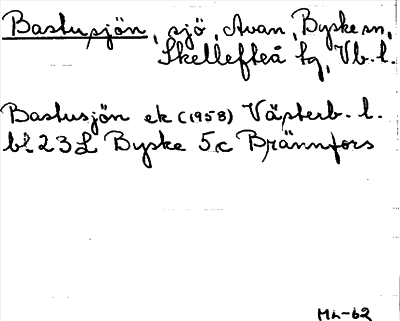 Bastusjön, sjö, Avan, Byske sn,
Skellefteå tg, Vb. l.
Bastusjön ek (1958) Västerb. l.
bl 23L Byske 5c Brännfors
Mh-62